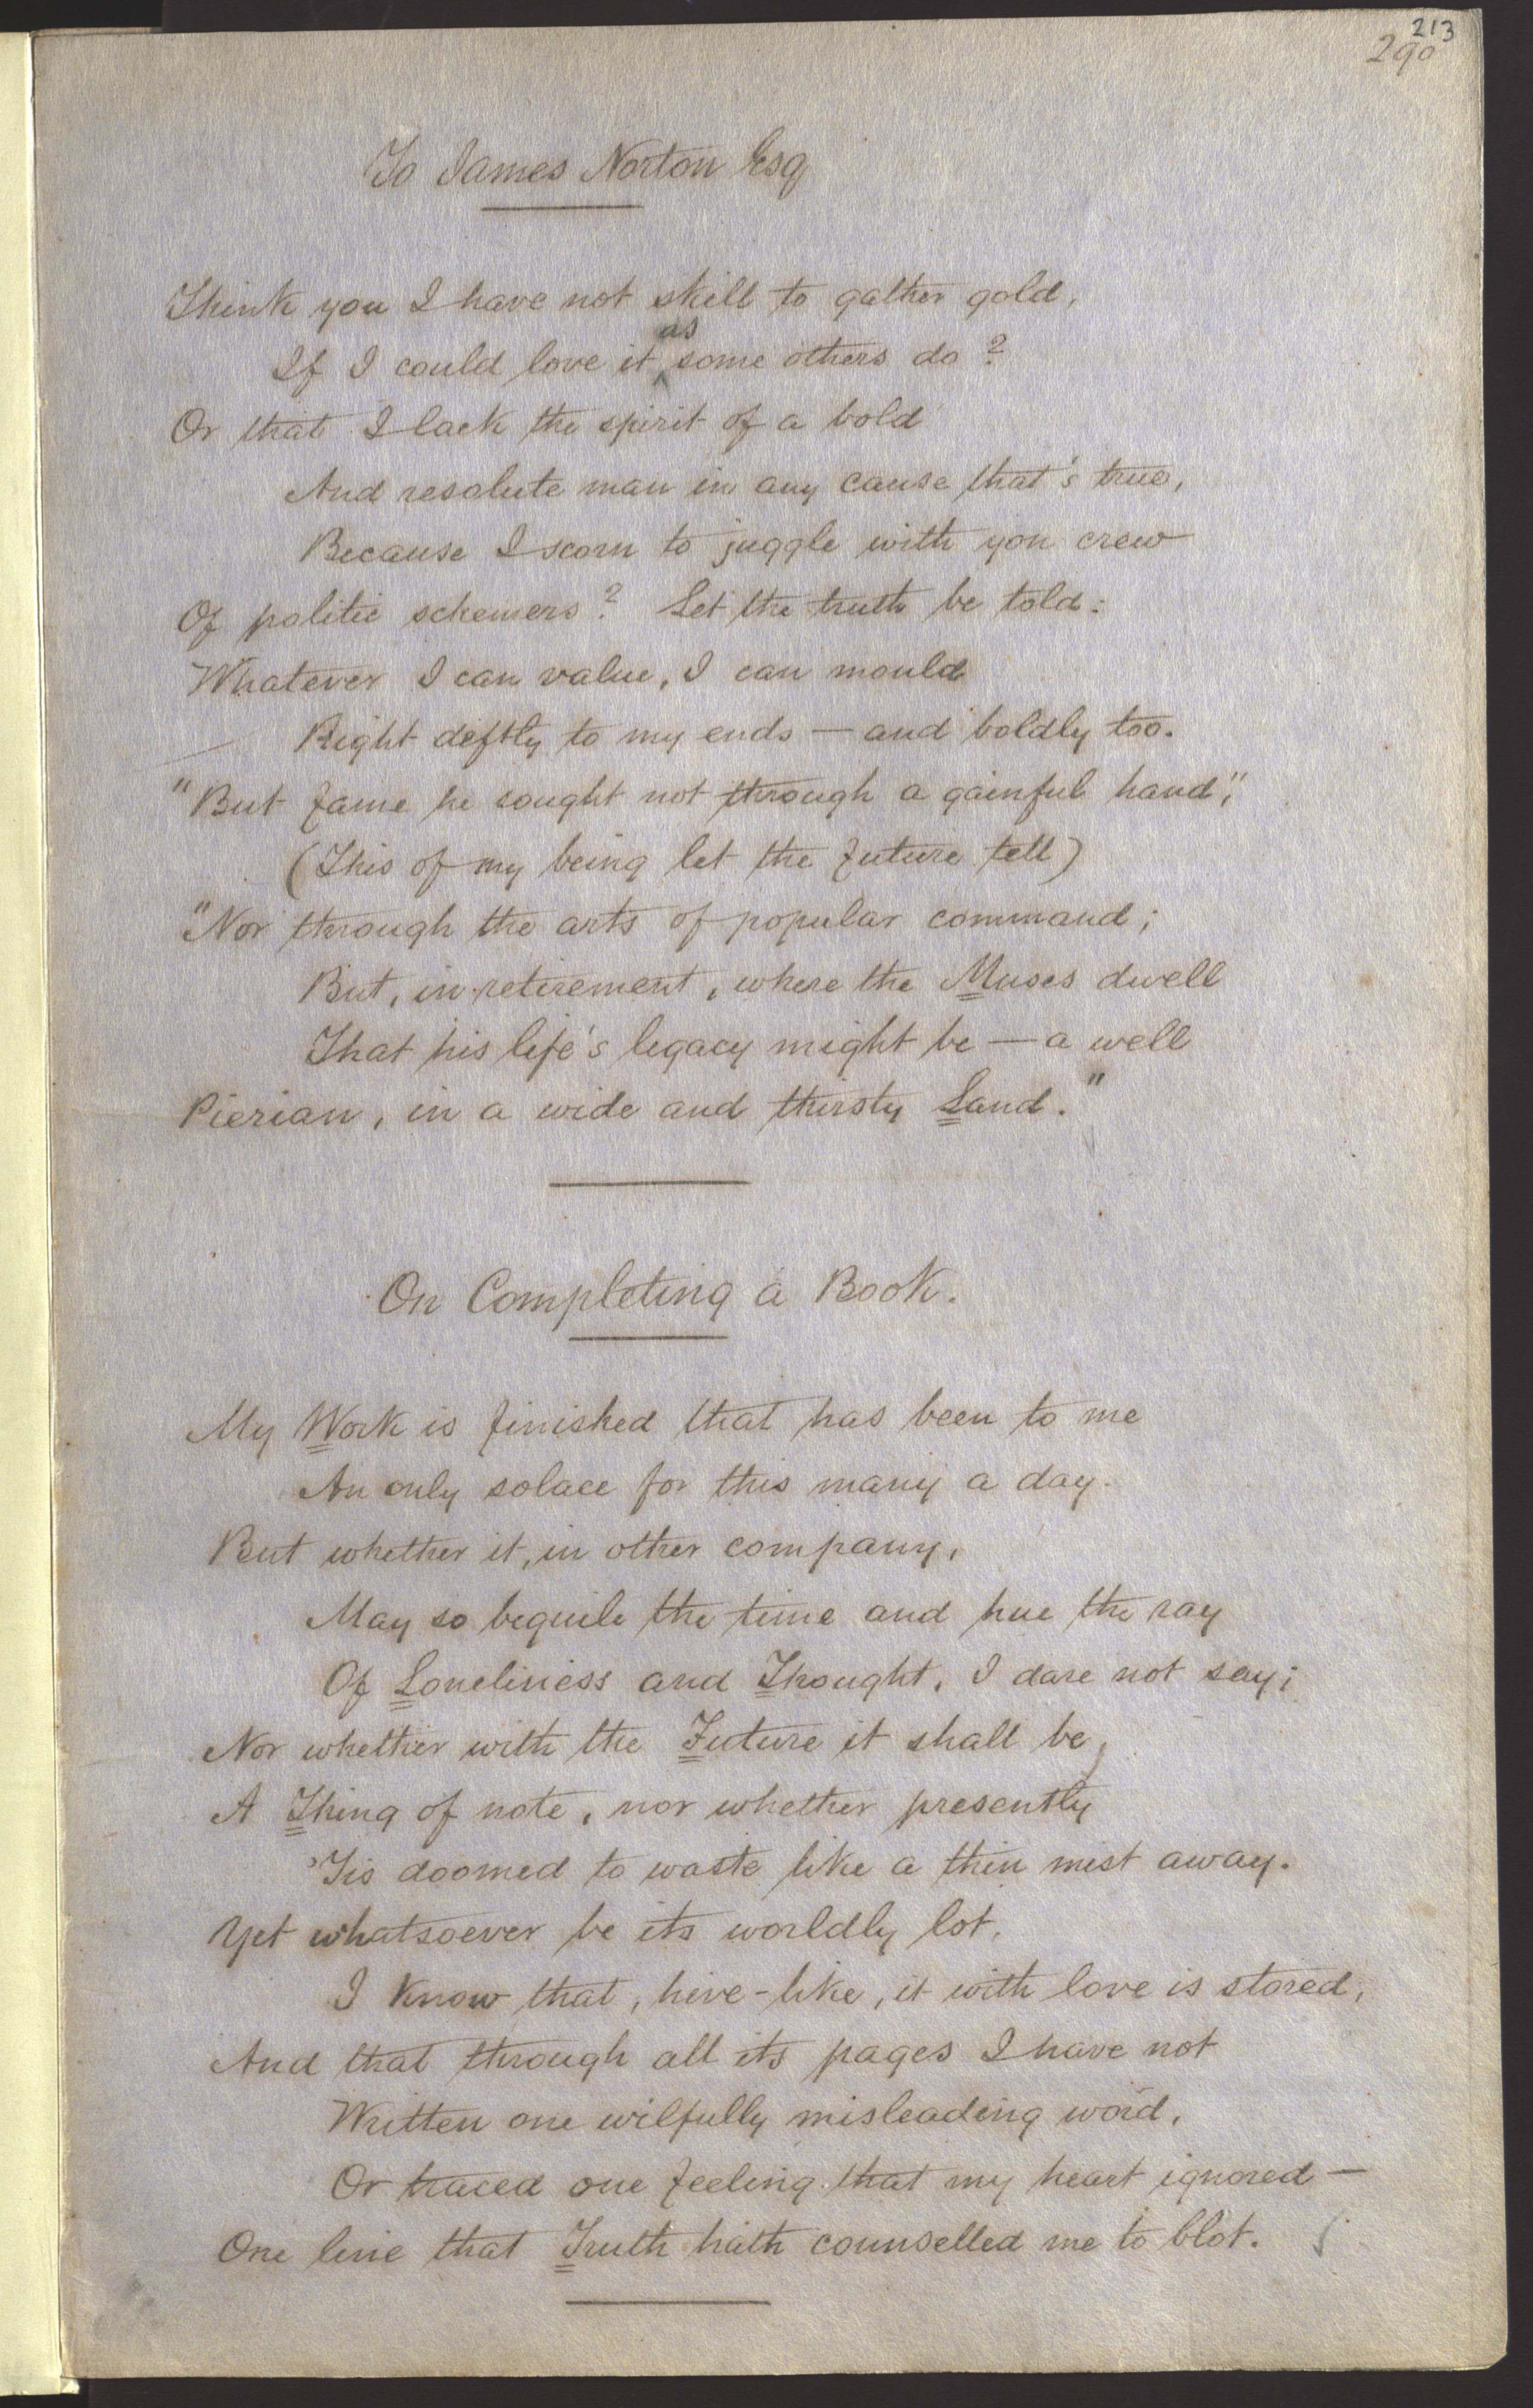 213
290
To James Norton Esq
Think you I have not skill to gather gold,
as
If I could love it some others do?
Or that I lack the spirit of a bold
And resolute man in any cause that's true,
Because I scorn to juggle with yon crew
Of politic schemers? Let the truth be told:
Whatever I can value, I can mould
Right deftly to my ends — and boldly too.
"But Fame he sought not through a gainful hand",
(This of my being let the Future tell)
"Nor through the arts of popular command;
But, in retirement, where the Muses dwell
That his life's legacy might be — a well
Pierian, in a wide and thirsty Land."
On Completing a Book.
My Work is finished that has been to me
An only solace for this many a day.
But whether it, in other company,
May so beguile the time and hue the ray
Of Loneliness and Thought, I dare not say;
Nor whether with the Future it shall be,
A Thing of note, nor whether presently
'Tis doomed to waste like a thin mist away.
Yet whatsoever be its worldly lot,
I know that, hive-like, it with love is stored,
And that through all its pages I have not
Written one wilfully misleading word,
Or traced one feeling that my heart ignored —
One line that Truth hath counselled me to blot.